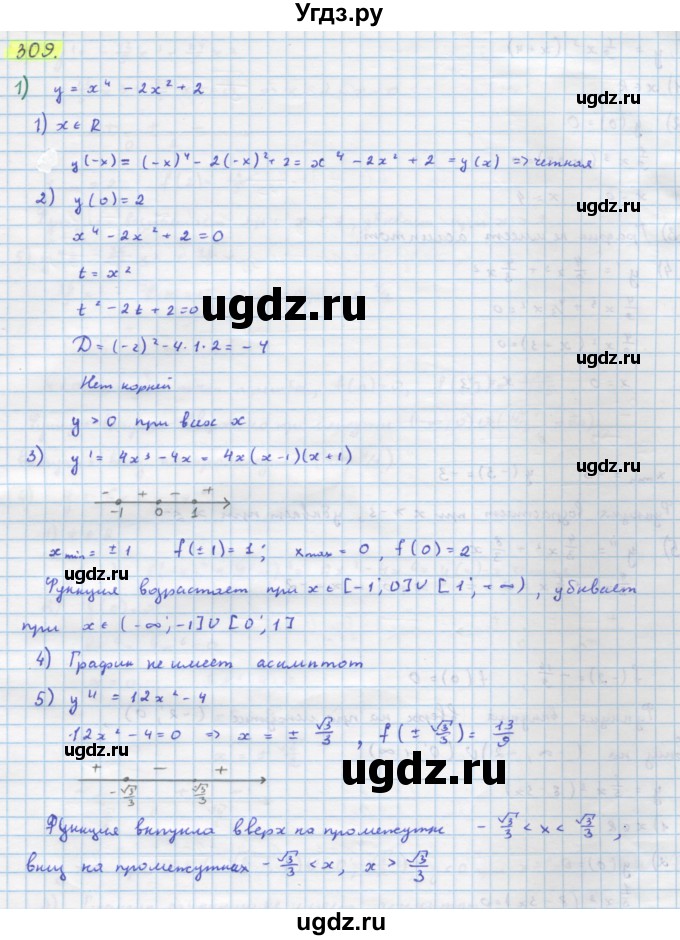 Угдз.ру
309.
1) y = x⁴ - 2x² + 2
ugdz.ru
1) x ∈ R
y(-x) = (-x)⁴ - 2(-x)² + 2 = x⁴ - 2x² + 2 = y(x) => четная
2) y(0) = 2
ugdz.ru
x⁴ - 2x² + 2 = 0
t = x²
t² - 2t + 2 = 0
ugdz.ru
D = (-2)² - 4·1·2 = -4
ugdz.ru
Нет корней
y > 0 при всех x
3) y' = 4x³ - 4x = 4x(x-1)(x+1)
ugdz.ru
- + - +
-1 0 1
x min = ±1 f(±1) = 1; x max = 0, f(0) = 2
ugdz.ru
ugdz.ru
Функция возрастает при x ∈ [-1; 0] ∪ [1; +∞), убывает
при x ∈ (-∞; -1] ∪ [0; 1]
4) График не имеет асимптот
ugdz.ru
5) y'' = 12x² - 4
12x² - 4 = 0 => x = ± √3/3, f(± √3/3) = 13/9
+ - +
ugdz.ru
-√3/3 √3/3
Функция выпукла вверх на промежутке -√3/3 < x < √3/3;
вниз на промежутках -√3/3 < x, x > √3/3
ugdz.ru
ugdz.ru